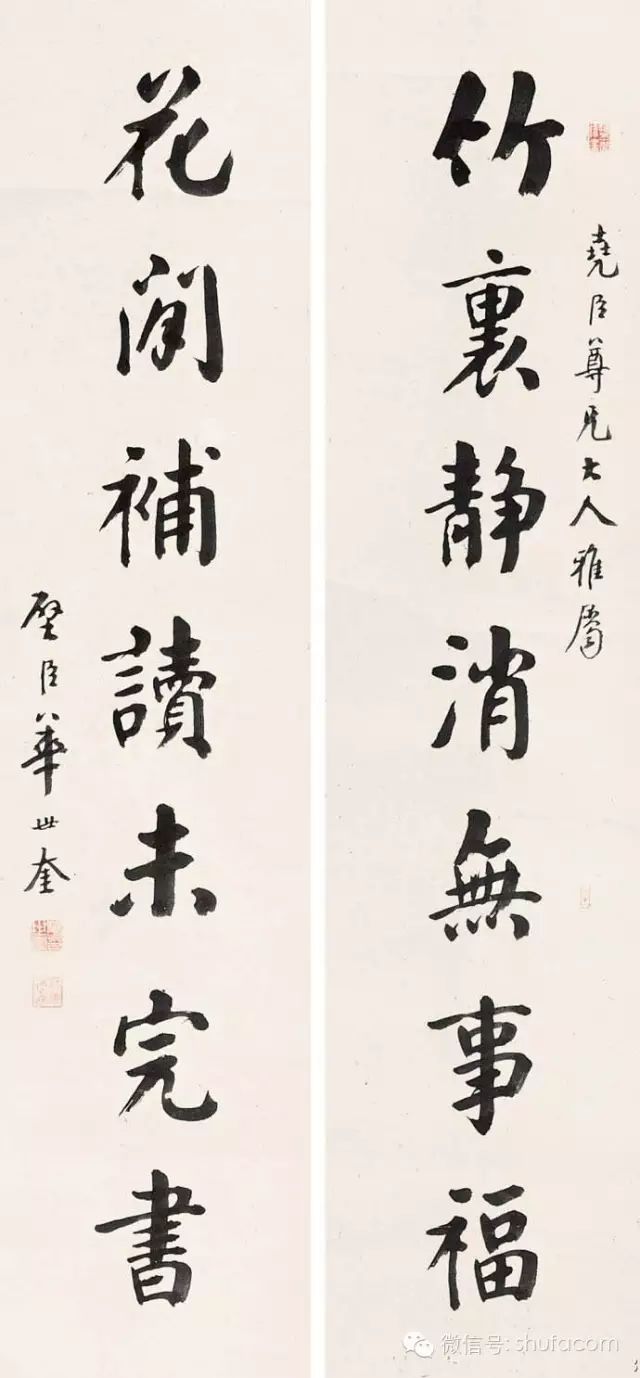 竹裏静消無事福
堯臣尊兄大人雅屬
花間補讀未完書
壁臣華世奎
微信号: shufacom